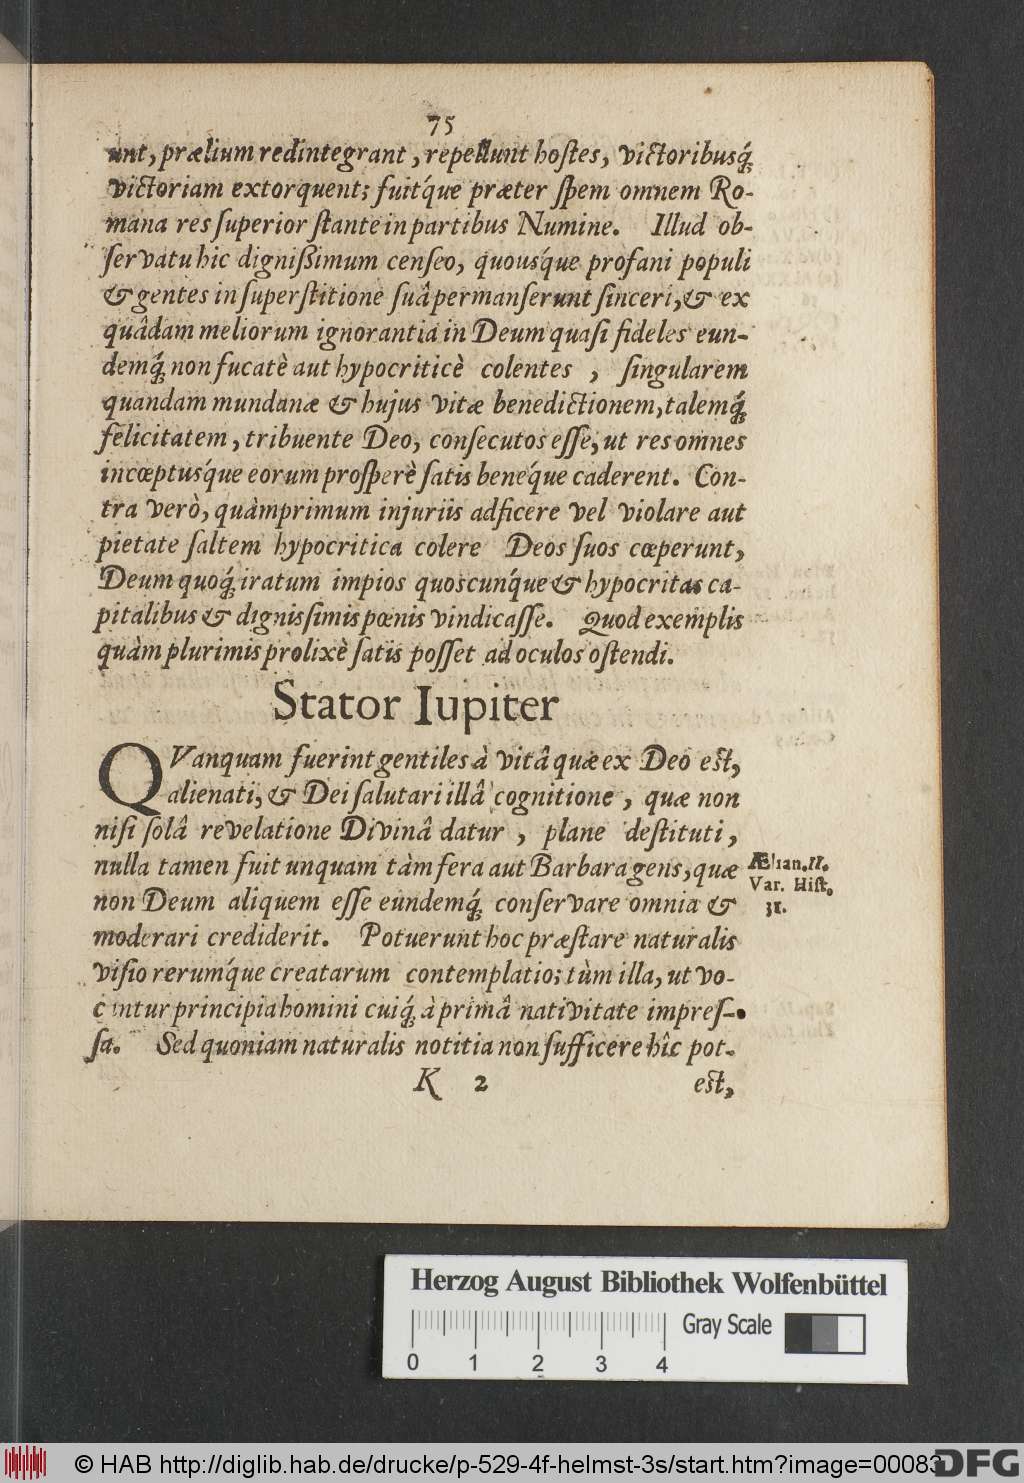 75
unt, prælium redintegrant, repellunt hoſtes, victoribusq́;
victoriam extorquent; fuit́que præter ſpem omnem Ro-
mana res ſuperior ſtante in partibus Numine. Illud ob-
ſervatu hic digniſſimum cenſeo, quouśque profani populi
& gentes in ſuperſtitione ſuâ permanſerunt ſinceri, & ex
quâdam meliorum ignorantiâ in Deum quaſi fideles eun-
demq́; non fucatè aut hypocriticè colentes, ſingularem
quandam mundanæ & hujus vitæ benedictionem, talemq́;
felicitatem, tribuente Deo, conſecutos eſſe, ut res omnes
incœptuśque eorum proſperè ſatis bené́que caderent. Con-
tra verò, quàmprimum injuriis adficere vel violare aut
pietate ſaltem hypocritica colere Deos ſuos cœperunt,
Deum quoq́; iratum impios quoscunq́ue & hypocritas ca-
pitalibus & digniſsimis pœnis vindicaſſe. Quod exemplis
quàm plurimis prolixè ſatis poſſet ad oculos oſtendi.
Stator Iupiter
QVanquam fuerint gentiles à vitâ quæ ex Deo eſt,
alienati, & Dei ſalutari illâ cognitione, quæ non
niſi ſolâ revelatione Divinâ datur, plane deſtituti,
nulla tamen fuit unquam tàm fera aut Barbara gens, quæ
non Deum aliquem eſſe eundemq́; conſervare omnia &
moderari crediderit. Potuerunt hoc præſtare naturalis
viſio rerumq́ue creatarum contemplatio; tùm illa, ut vo-
cantur principia homini cuiq́; à primâ nativitate impreſ-
ſa. Sed quoniam naturalis notitia non ſufficere hîc pot-
Ælian. II.
Var. Hiſt.
31.
K 2 eſt,
Herzog August Bibliothek Wolfenbüttel
Gray Scale
0 1 2 3 4
© HAB http://diglib.hab.de/drucke/p-529-4f-helmst-3s/start.htm?image=00083
DFG